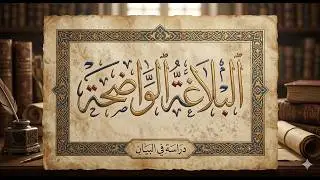 اَلْبَلَاغَةُ الْوَاضِحَة
دِرَاسَة فِي الْبَيَانِ